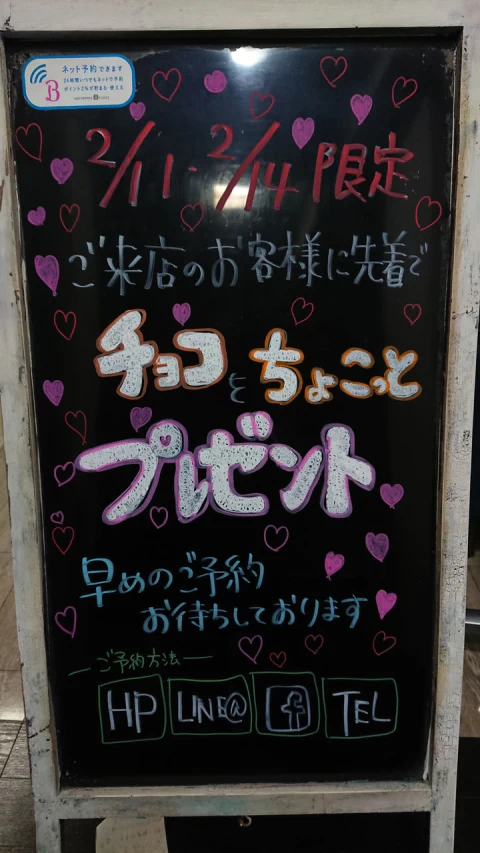 ネット予約できます
24時間いつでもネットで予約
ポイントなどが貯まる・使える
B
2/11・2/14 限定
ご来店のお客様に先着で
チョコとちょこっと
プレゼント
早めのご予約
お待ちしております
ご予約方法
HP LINE@ f TEL